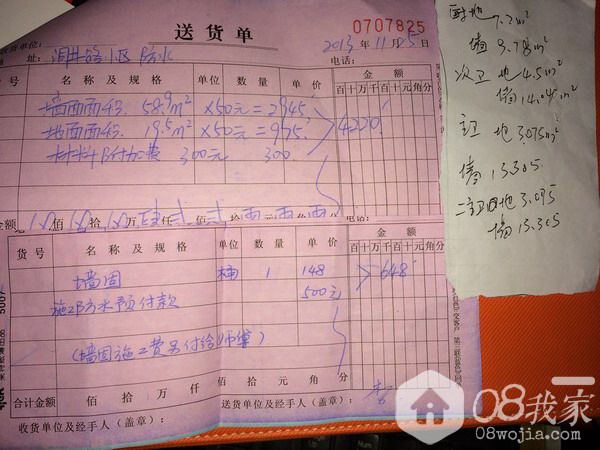 送货单
0707825
收货单位:
2013年11月25日
地址:
防水
电话:
货号 名称及规格 单位 数量 单价 金额
百十万千百十元角分
墙面面积 58.9m² ×50元=2945.
地面面积 19.5m² ×50元=975.
4220
材料附加费 300元 300.
货号 名称及规格 单位 数量 单价 金额
百十万千百十元角分
墙固 桶 1 148
648
500元
施工防水预付款
(墙固施工费另付给师傅)
合计金额 佰 拾 万 仟 佰 拾 元 角 分
收货单位及经手人(盖章): 送货单位及经手人(盖章):
地 7.2m²
墙 9.78m²
次卫 地 4.5m²
墙 14.04m²
主卫 地 3.075m²
墙 13.305.
地 3.095
墙 13.305
08我家
08wojia.com